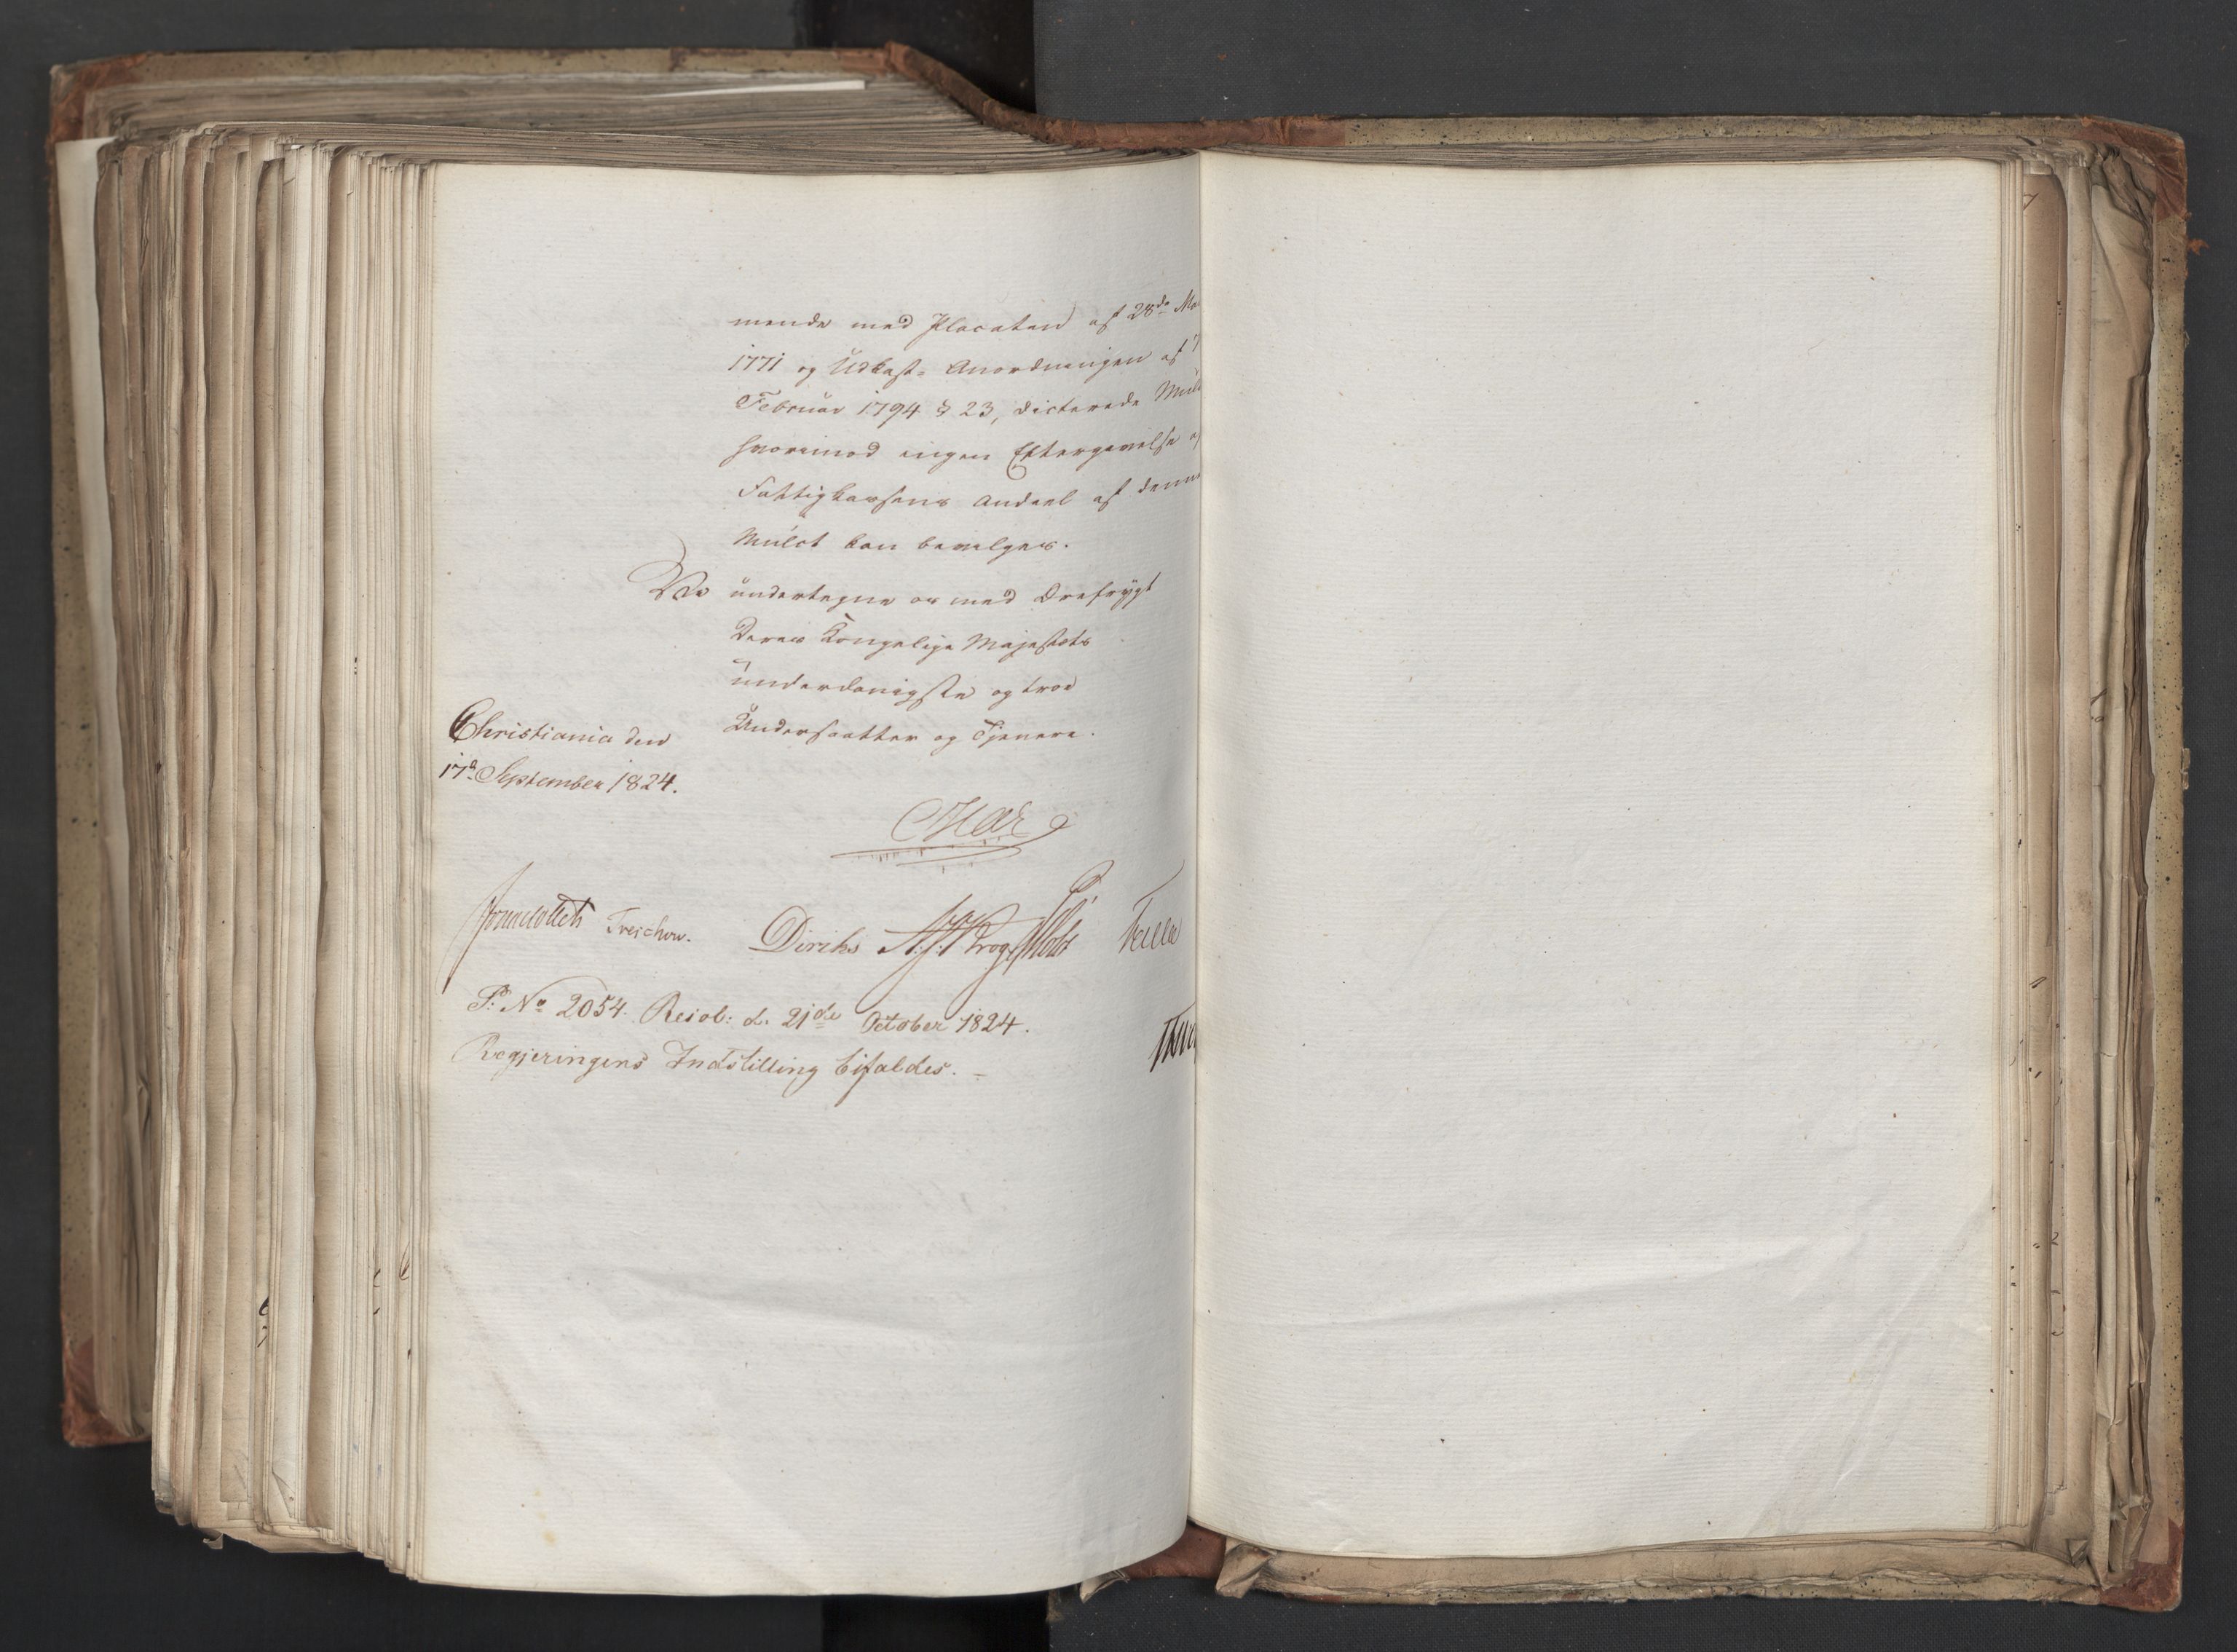 mende med Placaten af 28de Ma
1771 og Udkast-Anordningen af 7
Februar 1794 § 23, dicterede Mul
hvorimod ingen Eftergivelse af
Fattigkassens Andeel af denne
Mulct kan bevilges.
Vi undertegne os med Ærefrygt
Deres Kongelige Majestæts
underdanigste og troe
Undersaatter og Tjenere.
Christiania den
17d September 1824.
Treschow. Diriks
P: No 2054. Resol: d. 21de October 1824.
Regjeringens Indstilling bifaldes. –